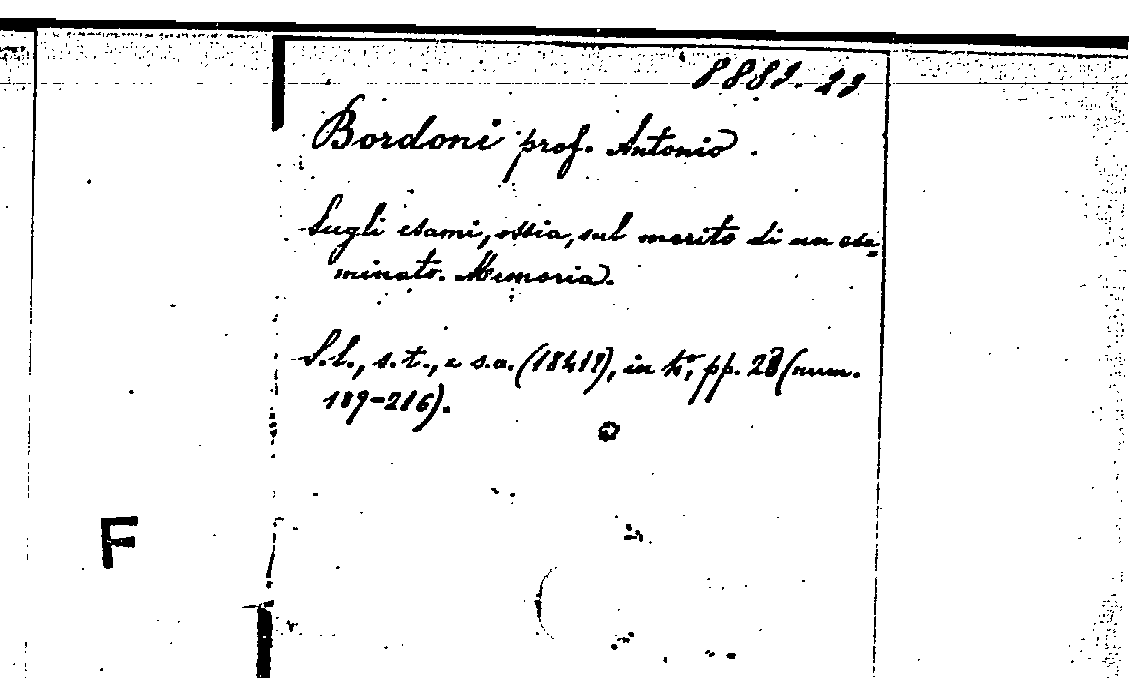 8882.23
Bordoni prof. Antonio.
Sugli esami, ossia, sul merito di un esa=
minato. Memoria.
S.l., s.t., e s.a. (1841?), in 4º, pp. 28 (num.
189-216).
F